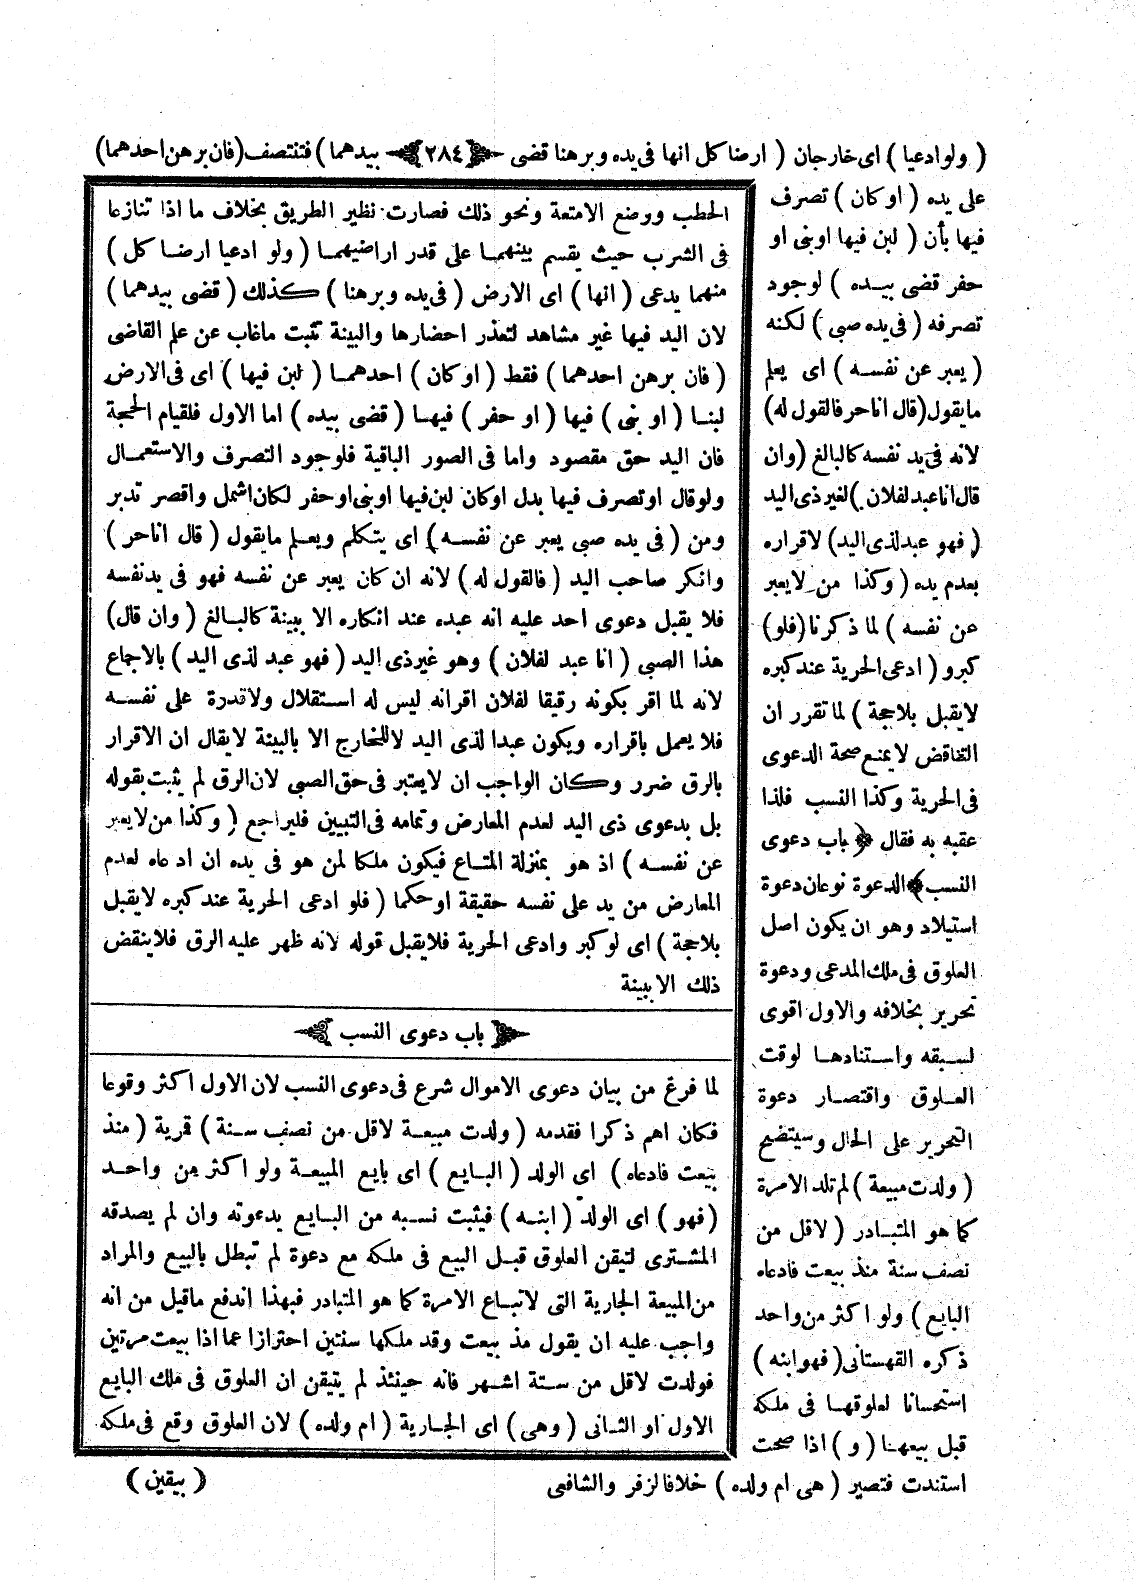 ( ولو ادعيا ) اى خارجان ( ارضا كل انها فى يده وبرهنا قضى ﴿٢٨٤﴾ بيدهما ) فتنتصف ( فان برهن احدهما )
على يده ( او كان ) تصرف
فيها بأن ( لبن فيها او بنى او
حفر قضى بيده ) لوجود
تصرفه ( فى يده صبى ) لكنه
( يعبر عن نفسه ) اى يعلم
مايقول ( قال انا حر فالقول له )
لانه فى يد نفسه كالبالغ ( وان
قال انا عبد لفلان ) لغير ذى اليد
( فهو عبد لذى اليد ) لاقراره
بعدم يده ( وكذا من لايعبر
عن نفسه ) لما ذكرنا ( فلو )
كبر و ( ادعى الحرية عند كبره
لايقبل بلاحجة ) لما تقرر ان
التناقض لايمنع صحة الدعوى
فى الحرية وكذا النسب فلذا
عقبه به فقال ﴿ باب دعوى
النسب ﴾ الدعوة نوعان دعوة
استيلاد وهو ان يكون اصل
العلوق فى ملك المدعى ودعوة
تحرير بخلافه والاول اقوى
لسبقه واستنادها لوقت
العلوق واقتصار دعوة
التحرير على الحال وسيتضح
( ولدت مبيعة ) لم تلد الامرة
كما هو المتبادر ( لاقل من
نصف سنة منذ بيعت فادعاه
البايع ) ولو اكثر من واحد
ذكره القهستانى ( فهو ابنه )
استحسانا لعلوقها فى ملكه
قبل بيعها ( و ) اذا صحت
استندت فتصير ( هى ام ولده ) خلافا لزفر والشافعى
الحطب ووضع الامتعة ونحو ذلك فصارت نظير الطريق بخلاف ما اذا تنازعا
فى الشرب حيث يقسم بينهما على قدر اراضيهما ( ولو ادعيا ارضا كل )
منهما يدعى ( انها ) اى الارض ( فى يده وبرهنا ) كذلك ( قضى بيدهما )
لان اليد فيها غير مشاهد لتعذر احضارها والبينة تثبت ماغاب عن علم القاضى
( فان برهن احدهما ) فقط ( او كان ) احدهما ( لبن فيها ) اى فى الارض
لبنا ( او بنى ) فيها ( او حفر ) فيها ( قضى بيده ) اما الاول فلقيام الحجة
فان اليد حق مقصود واما فى الصور الباقية فلوجود التصرف والاستعمال
ولوقال اوتصرف فيها بدل اوكان لبن فيها اوبنى اوحفر لكان اشمل واقصر تدبر
ومن ( فى يده صبى يعبر عن نفسه ) اى يتكلم ويعلم مايقول ( قال انا حر )
وانكر صاحب اليد ( فالقول له ) لانه ان كان يعبر عن نفسه فهو فى يد نفسه
فلا يقبل دعوى احد عليه انه عبده عند انكاره الا ببينة كالبالغ ( وان قال )
هذا الصبى ( انا عبد لفلان ) وهو غير ذى اليد ( فهو عبد لذى اليد ) بالاجماع
لانه لما اقر بكونه رقيقا لفلان اقرانه ليس له استقلال ولاقدرة على نفسه
فلا يعمل باقراره ويكون عبدا لذى اليد لاللخارج الا بالبينة لايقال ان الاقرار
بالرق ضرر وكان الواجب ان لايعتبر فى حق الصبى لان الرق لم يثبت بقوله
بل بدعوى ذى اليد لعدم المعارض وتمامه فى التبيين فليراجع ( وكذا من لايعبر
عن نفسه ) اذ هو بمنزلة المتاع فيكون ملكا لمن هو فى يده ان ادعاه لعدم
المعارض من يد على نفسه حقيقة اوحكما ( فلو ادعى الحرية عند كبره لايقبل
بلاحجة ) اى لو كبر وادعى الحرية فلايقبل قوله لانه ظهر عليه الرق فلاينقض
ذلك الا ببينة
﴿ باب دعوى النسب ﴾
لما فرغ من بيان دعوى الاموال شرع فى دعوى النسب لان الاول اكثر وقوعا
فكان اهم ذكرا فقدمه ( ولدت مبيعة لاقل من نصف سنة ) قمرية ( منذ
بيعت فادعاه ) اى الولد ( البايع ) اى بايع المبيعة ولو اكثر من واحد
( فهو ) اى الولد ( ابنه ) فيثبت نسبه من البايع بدعوته وان لم يصدقه
المشترى لتيقن العلوق قبل البيع فى ملكه مع دعوة لم تبطل بالبيع والمراد
من المبيعة الجارية التى لاتباع الامرة كما هو المتبادر فبهذا اندفع ماقيل من انه
واجب عليه ان يقول مذ بيعت وقد ملكها سنتين احترازا عما اذا بيعت مرتين
فولدت لاقل من ستة اشهر فانه حينئذ لم يتيقن ان العلوق فى ملك البايع
الاول او الثانى ( وهى ) اى الجارية ( ام ولده ) لان العلوق وقع فى ملكه
( بيقين )